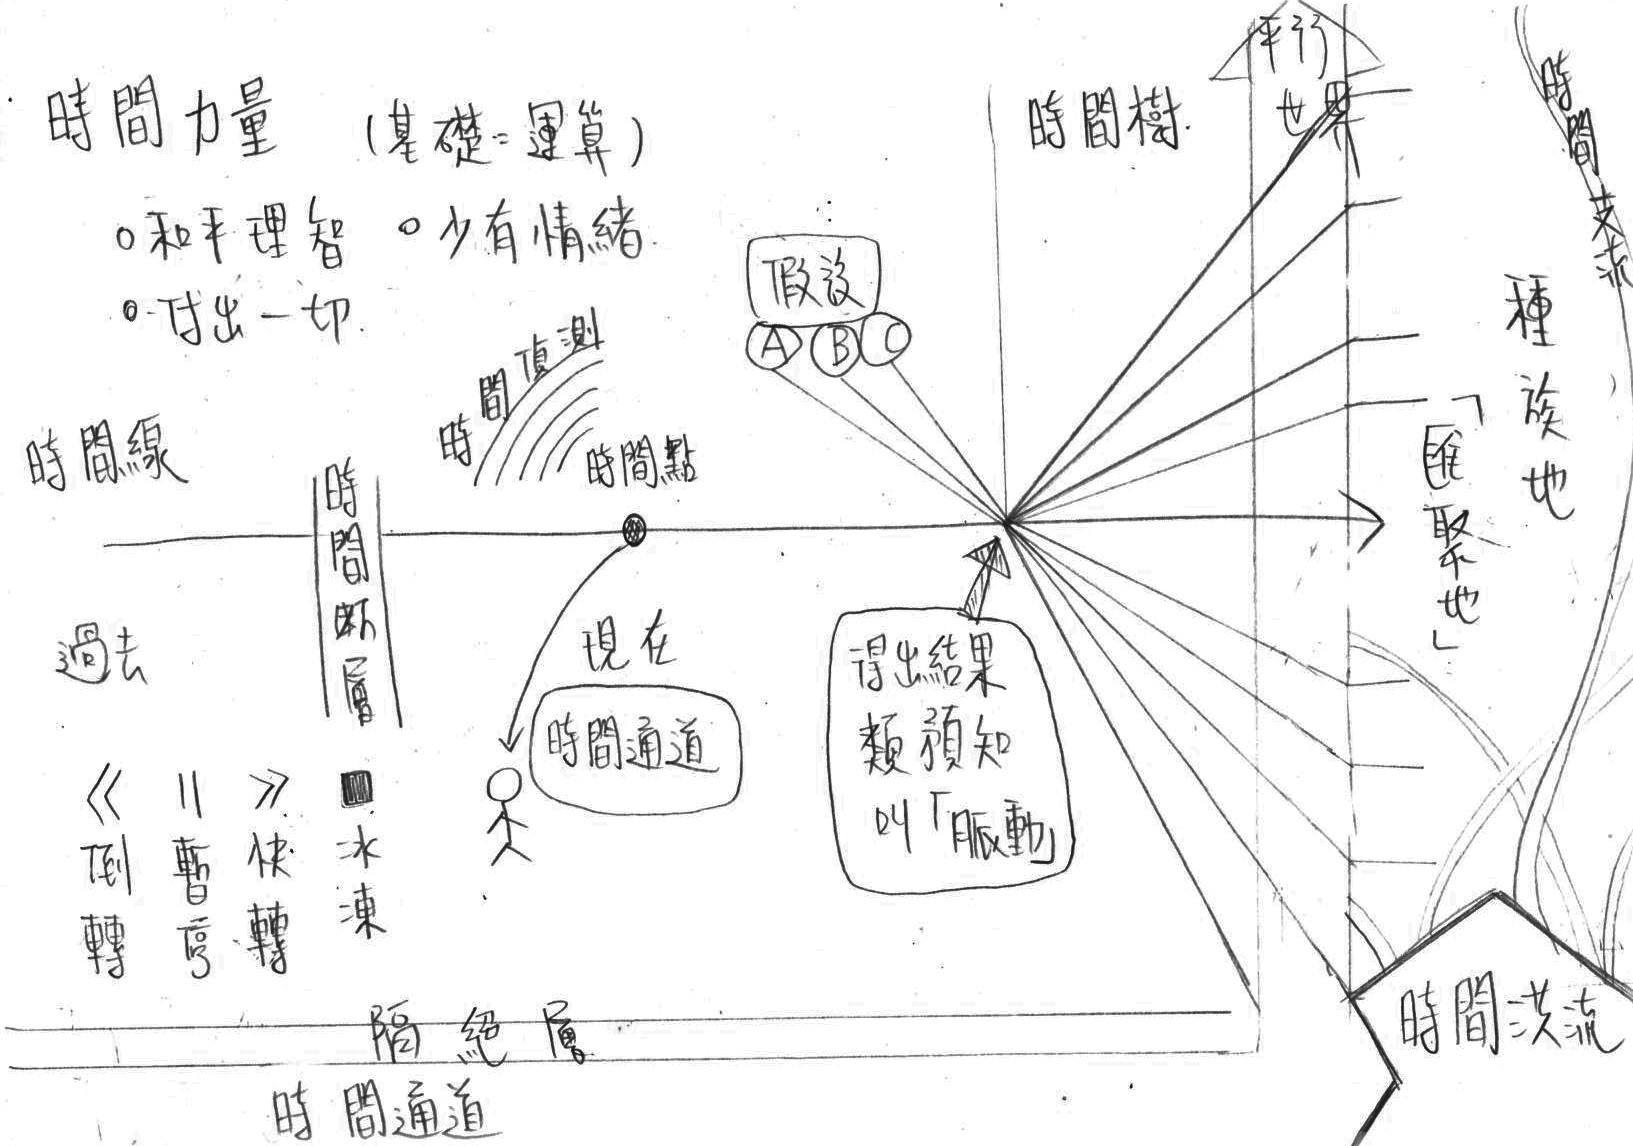 時間力量 (基礎=運算)
○和平理智 ○少有情緒
○付出一切
時間線
時間斷層
時間偵測
時間點
假設
A B C
時間樹
平行世界
時間支流
種族地
「匯聚地」
過去
現在
時間通道
得出結果
類預知
叫「脈動」
<< 倒轉
|| 暫停
>> 快轉
■ 冰凍
隔絕層
時間通道
時間洪流